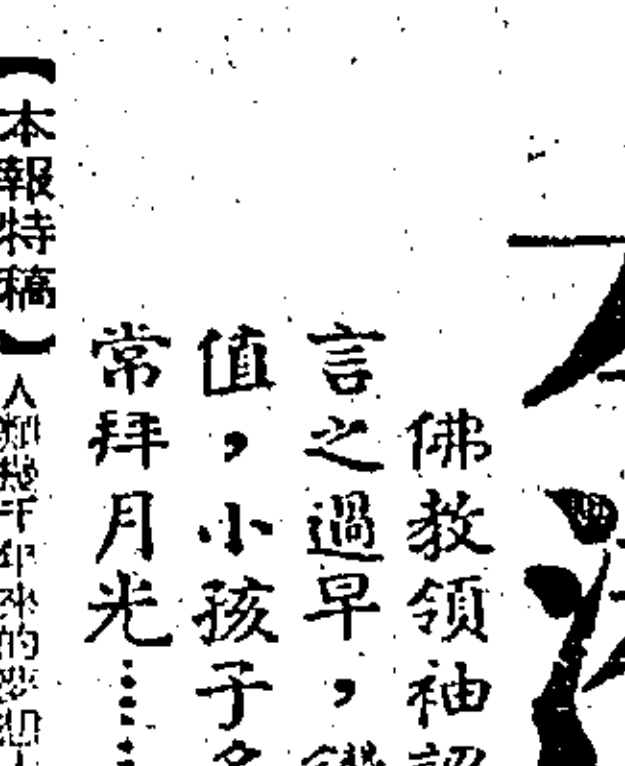 佛教領袖認
言之過早，
值，小孩子
常拜月光……
【本報特稿】人類幾千年來的夢想